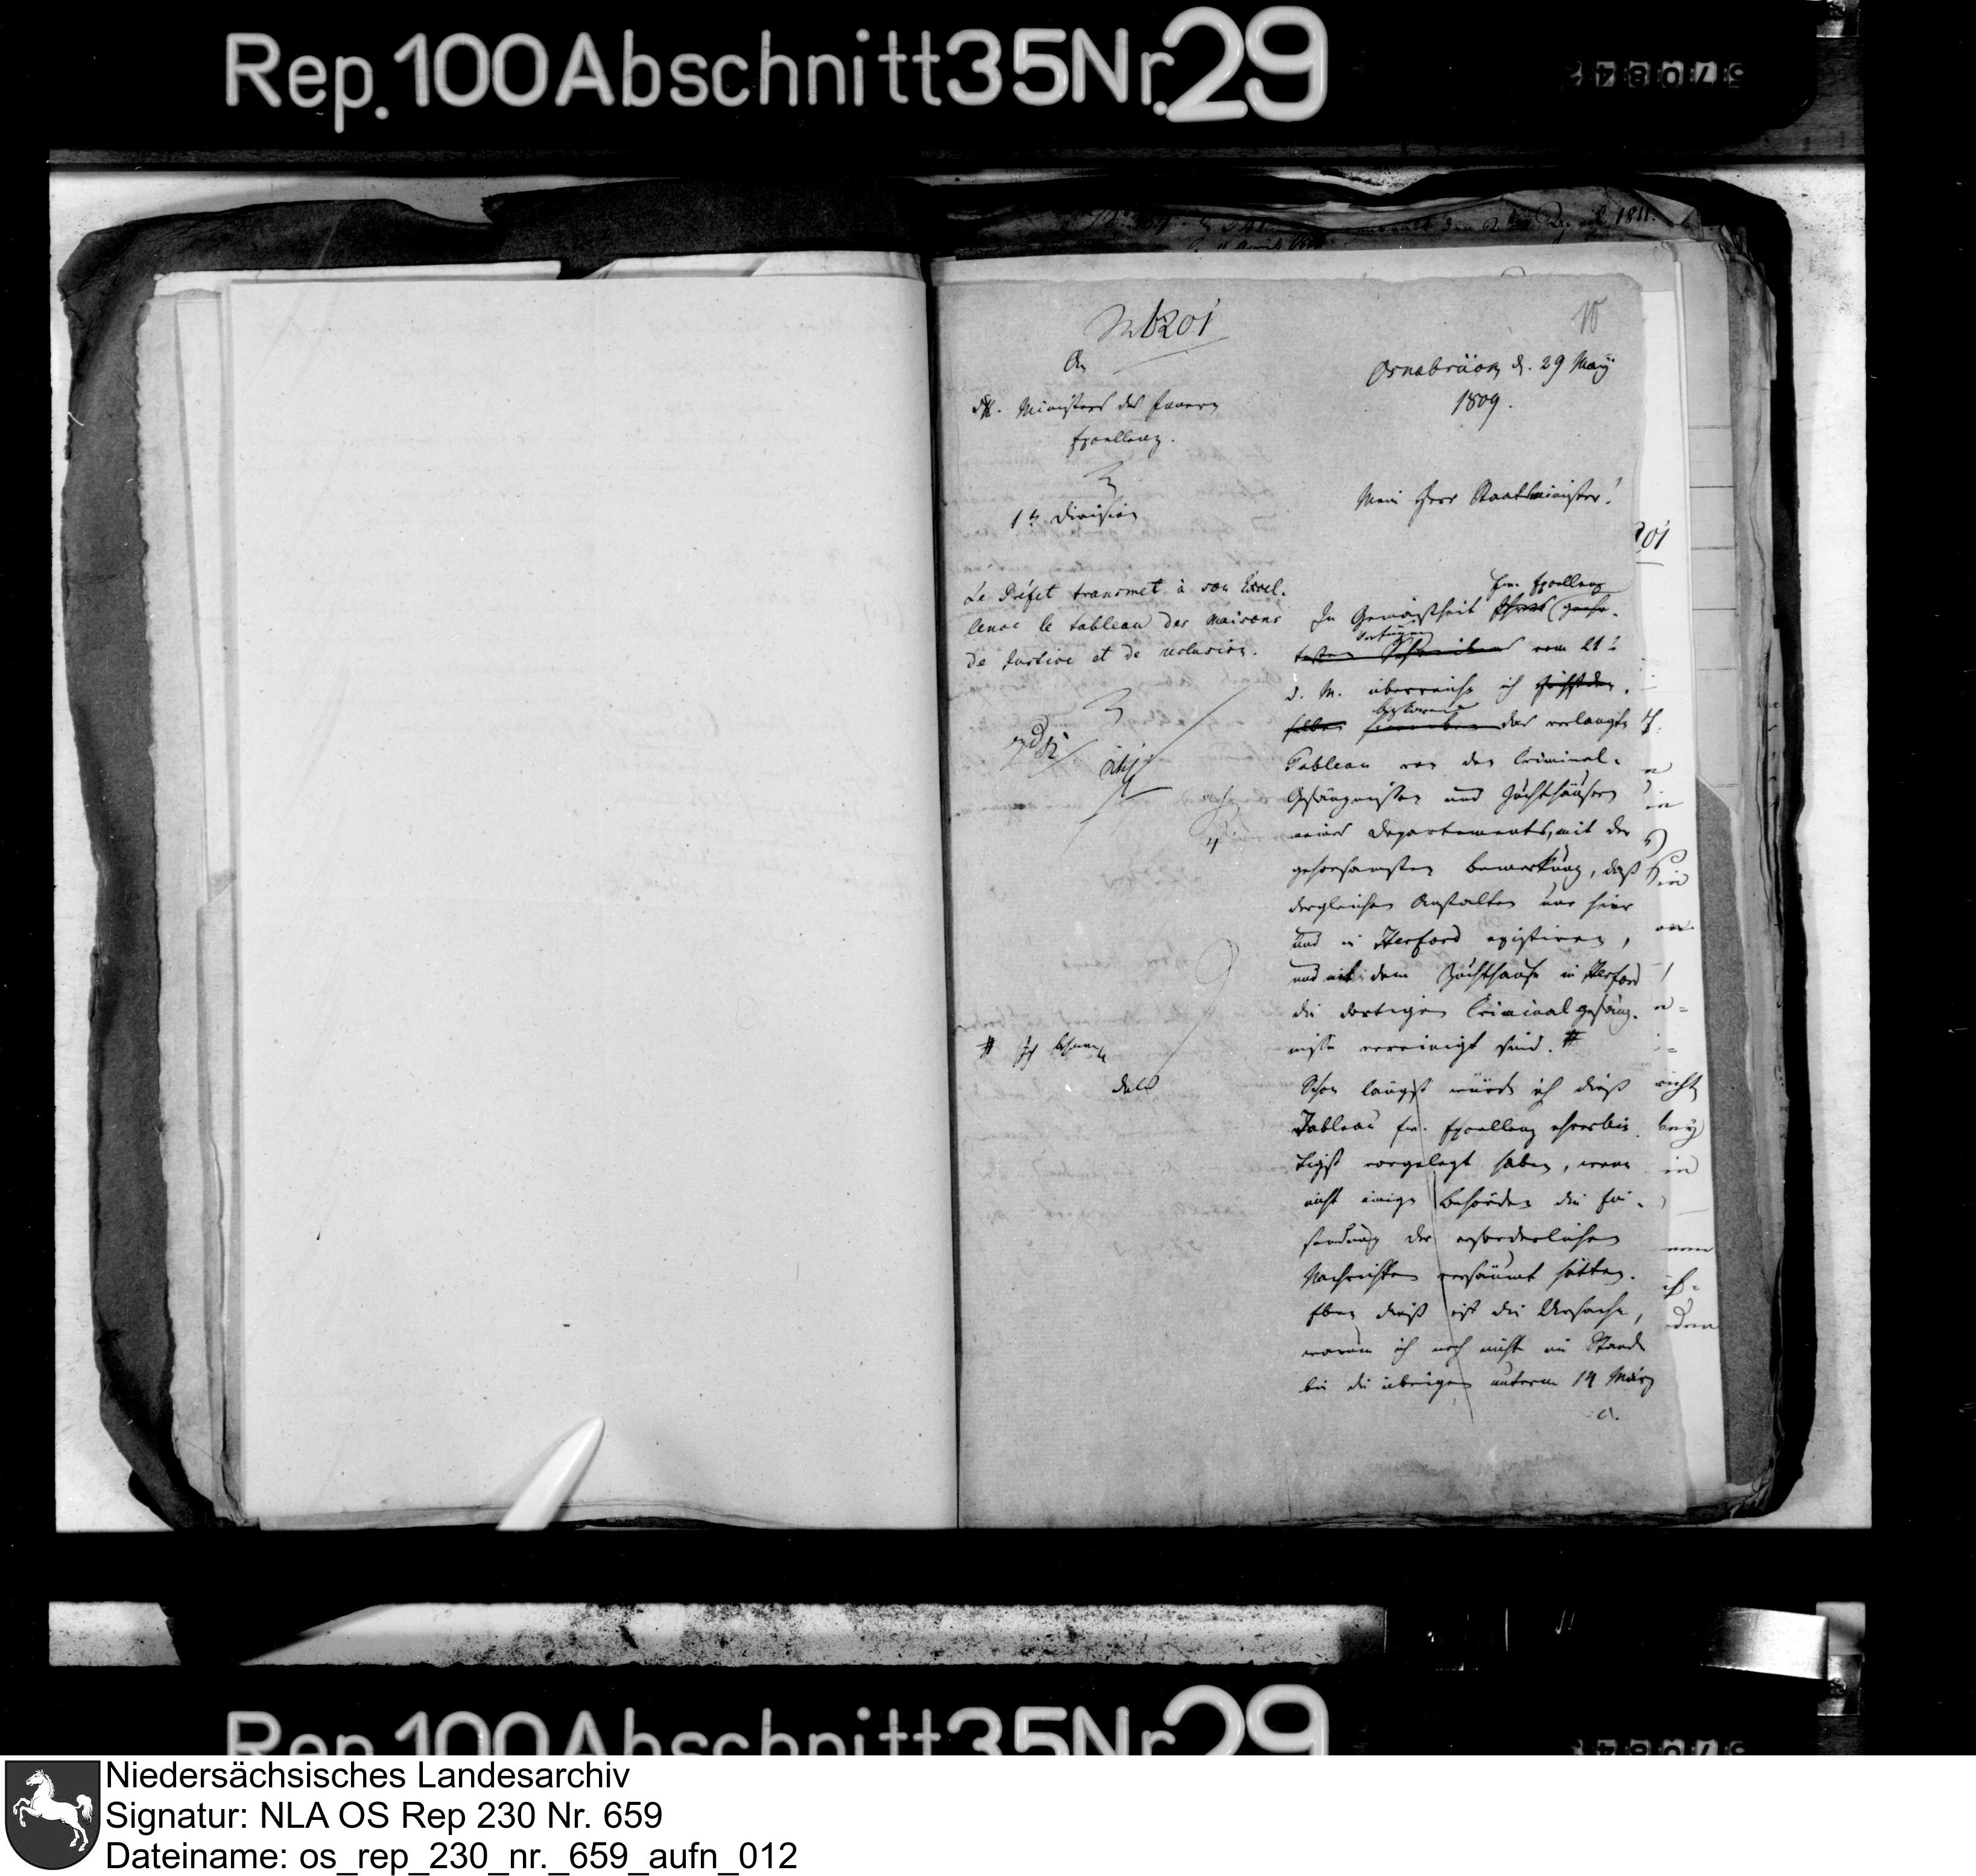 Rep. 100 Abschnitt 35 Nr. 29
10
1201
An
Ministers des Innern
Excellenz.
1te Division
Le Préfet transmet à son Excel-
lence le tableau des maisons
de Justice et de reclusion.
Osnabrück d. 29 May
1809.
Mein Herr Staatsminister!
Ew. Excellenz
In Gemäßheit Ihres geehr-
testen Schreibens vom 21
d. M. überreiche ich
das verlangte
Tableau von den Criminal-
Gefängnissen und Zuchthäusern
meines Departements, mit der
gehorsamsten Bemerkung, daß
dergleichen Anstalten nur hier
und in Herford existiren,
und mit dem Zuchthause in Herford
die dortigen Criminalgefäng-
nisse vereinigt sind. #
# Ich
Schon längst würde ich dieß
Tableau Ew. Excellenz ehrerbie-
tigst vorgelegt haben, wenn
nicht einige Behörden die Ein-
sendung der erforderlichen
Nachrichten versäumt hätten.
Eben dieß ist die Ursache,
warum ich noch nicht im Stande
bin die übrigen unterm 14 März
a.
201
Rep. 100 Abschnitt 35 Nr. 29
Niedersächsisches Landesarchiv
Signatur: NLA OS Rep 230 Nr. 659
Dateiname: os_rep_230_nr._659_aufn_012